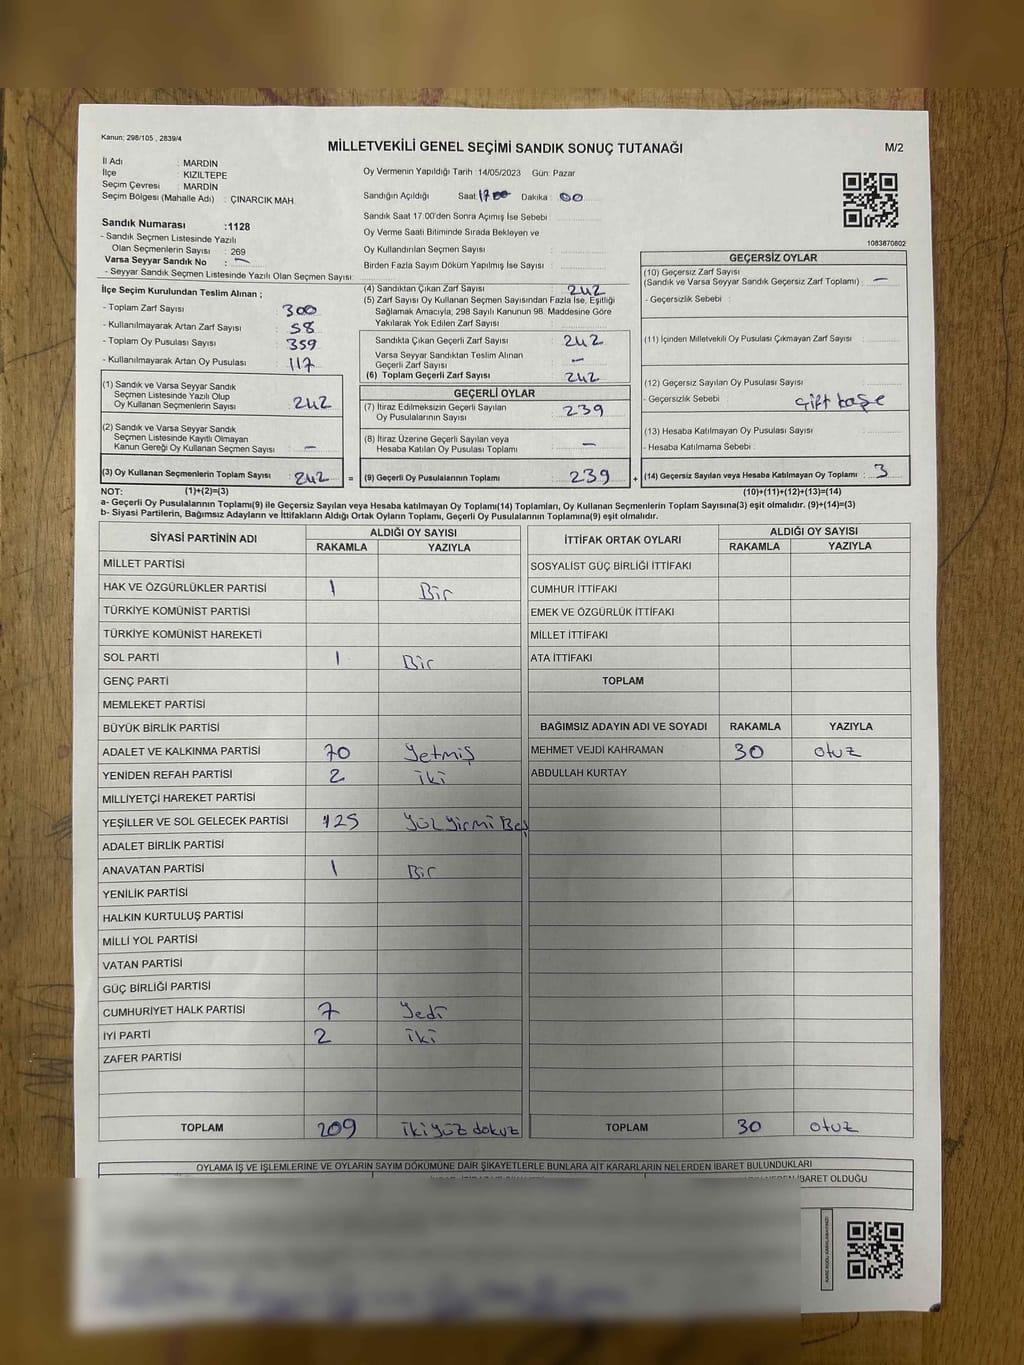 Kanun; 298/105 , 2839/4
MİLLETVEKİLİ GENEL SEÇİMİ SANDIK SONUÇ TUTANAĞI
M/2
İl Adı : MARDİN
İlçe : KIZILTEPE
Seçim Çevresi : MARDİN
Seçim Bölgesi (Mahalle Adı) : ÇINARCIK MAH.
Oy Vermenin Yapıldığı Tarih : 14/05/2023 Gün: Pazar
Sandığın Açıldığı Saat: 17.00 Dakika : 00
Sandık Saat 17:00'den Sonra Açımış İse Sebebi :
Oy Verme Saati Bitiminde Sırada Bekleyen ve
Oy Kullandırılan Seçmen Sayısı :
Birden Fazla Sayım Döküm Yapılmış İse Sayısı :
1083870802
Sandık Numarası :1128
- Sandık Seçmen Listesinde Yazılı
Olan Seçmenlerin Sayısı : 269
Varsa Seyyar Sandık No : –
- Seyyar Sandık Seçmen Listesinde Yazılı Olan Seçmen Sayısı:
İlçe Seçim Kurulundan Teslim Alınan ;
- Toplam Zarf Sayısı : 300
- Kullanılmayarak Artan Zarf Sayısı : 58
- Toplam Oy Pusulası Sayısı : 359
- Kullanılmayarak Artan Oy Pusulası : 117
(1) Sandık ve Varsa Seyyar Sandık
Seçmen Listesinde Yazılı Olup
Oy Kullanan Seçmenlerin Sayısı : 242
(2) Sandık ve Varsa Seyyar Sandık
Seçmen Listesinde Kayıtlı Olmayan
Kanun Gereği Oy Kullanan Seçmen Sayısı : –
(3) Oy Kullanan Seçmenlerin Toplam Sayısı : 242 =
(4) Sandıktan Çıkan Zarf Sayısı : 242
(5) Zarf Sayısı Oy Kullanan Seçmen Sayısından Fazla İse, Eşitliği
Sağlamak Amacıyla, 298 Sayılı Kanunun 98. Maddesine Göre
Yakılarak Yok Edilen Zarf Sayısı :
Sandıkta Çıkan Geçerli Zarf Sayısı : 242
Varsa Seyyar Sandıktan Teslim Alınan
Geçerli Zarf Sayısı : –
(6) Toplam Geçerli Zarf Sayısı : 242
GEÇERLİ OYLAR
(7) İtiraz Edilmeksizin Geçerli Sayılan
Oy Pusulalarının Sayısı : 239
(8) İtiraz Üzerine Geçerli Sayılan veya
Hesaba Katılan Oy Pusulası Toplamı : –
(9) Geçerli Oy Pusulalarının Toplamı : 239 +
GEÇERSİZ OYLAR
(10) Geçersiz Zarf Sayısı
(Sandık ve Varsa Seyyar Sandık Geçersiz Zarf Toplamı) : –
- Geçersizlik Sebebi :
(11) İçinden Milletvekili Oy Pusulası Çıkmayan Zarf Sayısı :
(12) Geçersiz Sayılan Oy Pusulası Sayısı :
- Geçersizlik Sebebi : Çift kaşe
(13) Hesaba Katılmayan Oy Pusulası Sayısı :
- Hesaba Katılmama Sebebi :
(14) Geçersiz Sayılan veya Hesaba Katılmayan Oy Toplamı : 3
NOT: (1)+(2)=(3) (10)+(11)+(12)+(13)=(14)
a- Geçerli Oy Pusulalarının Toplamı(9) ile Geçersiz Sayılan veya Hesaba katılmayan Oy Toplamı(14) Toplamları, Oy Kullanan Seçmenlerin Toplam Sayısına(3) eşit olmalıdır. (9)+(14)=(3)
b- Siyasi Partilerin, Bağımsız Adayların ve İttifakların Aldığı Oy Oyların Toplamı, Geçerli Oy Pusulalarının Toplamına(9) eşit olmalıdır.
SİYASİ PARTİNİN ADI ALDIĞI OY SAYISI
RAKAMLA YAZIYLA
MİLLET PARTİSİ
HAK VE ÖZGÜRLÜKLER PARTİSİ 1 Bir
TÜRKİYE KOMÜNİST PARTİSİ
TÜRKİYE KOMÜNİST HAREKETİ
SOL PARTİ 1 Bir
GENÇ PARTİ
MEMLEKET PARTİSİ
BÜYÜK BİRLİK PARTİSİ
ADALET VE KALKINMA PARTİSİ 70 Yetmiş
YENİDEN REFAH PARTİSİ 2 iki
MİLLİYETÇİ HAREKET PARTİSİ
YEŞİLLER VE SOL GELECEK PARTİSİ 125 Yüz Yirmi Beş
ADALET BİRLİK PARTİSİ
ANAVATAN PARTİSİ 1 Bir
YENİLİK PARTİSİ
HALKIN KURTULUŞ PARTİSİ
MİLLİ YOL PARTİSİ
VATAN PARTİSİ
GÜÇ BİRLİĞİ PARTİSİ
CUMHURİYET HALK PARTİSİ 7 Yedi
İYİ PARTİ 2 iki
ZAFER PARTİSİ
TOPLAM 209 ikiyüz dokuz
İTTİFAK ORTAK OYLARI ALDIĞI OY SAYISI
RAKAMLA YAZIYLA
SOSYALİST GÜÇ BİRLİĞİ İTTİFAKI
CUMHUR İTTİFAKI
EMEK VE ÖZGÜRLÜK İTTİFAKI
MİLLET İTTİFAKI
ATA İTTİFAKI
TOPLAM
BAĞIMSIZ ADAYIN ADI VE SOYADI RAKAMLA YAZIYLA
MEHMET VEJDİ KAHRAMAN 30 otuz
ABDULLAH KURTAY
TOPLAM 30 otuz
OYLAMA İŞ VE İŞLEMLERİNE VE OYLARIN SAYIM DÖKÜMÜNE DAİR ŞİKAYETLERLE BUNLARA AİT KARARLARIN NELERDEN İBARET BULUNDUKLARI
İBARET OLDUĞU